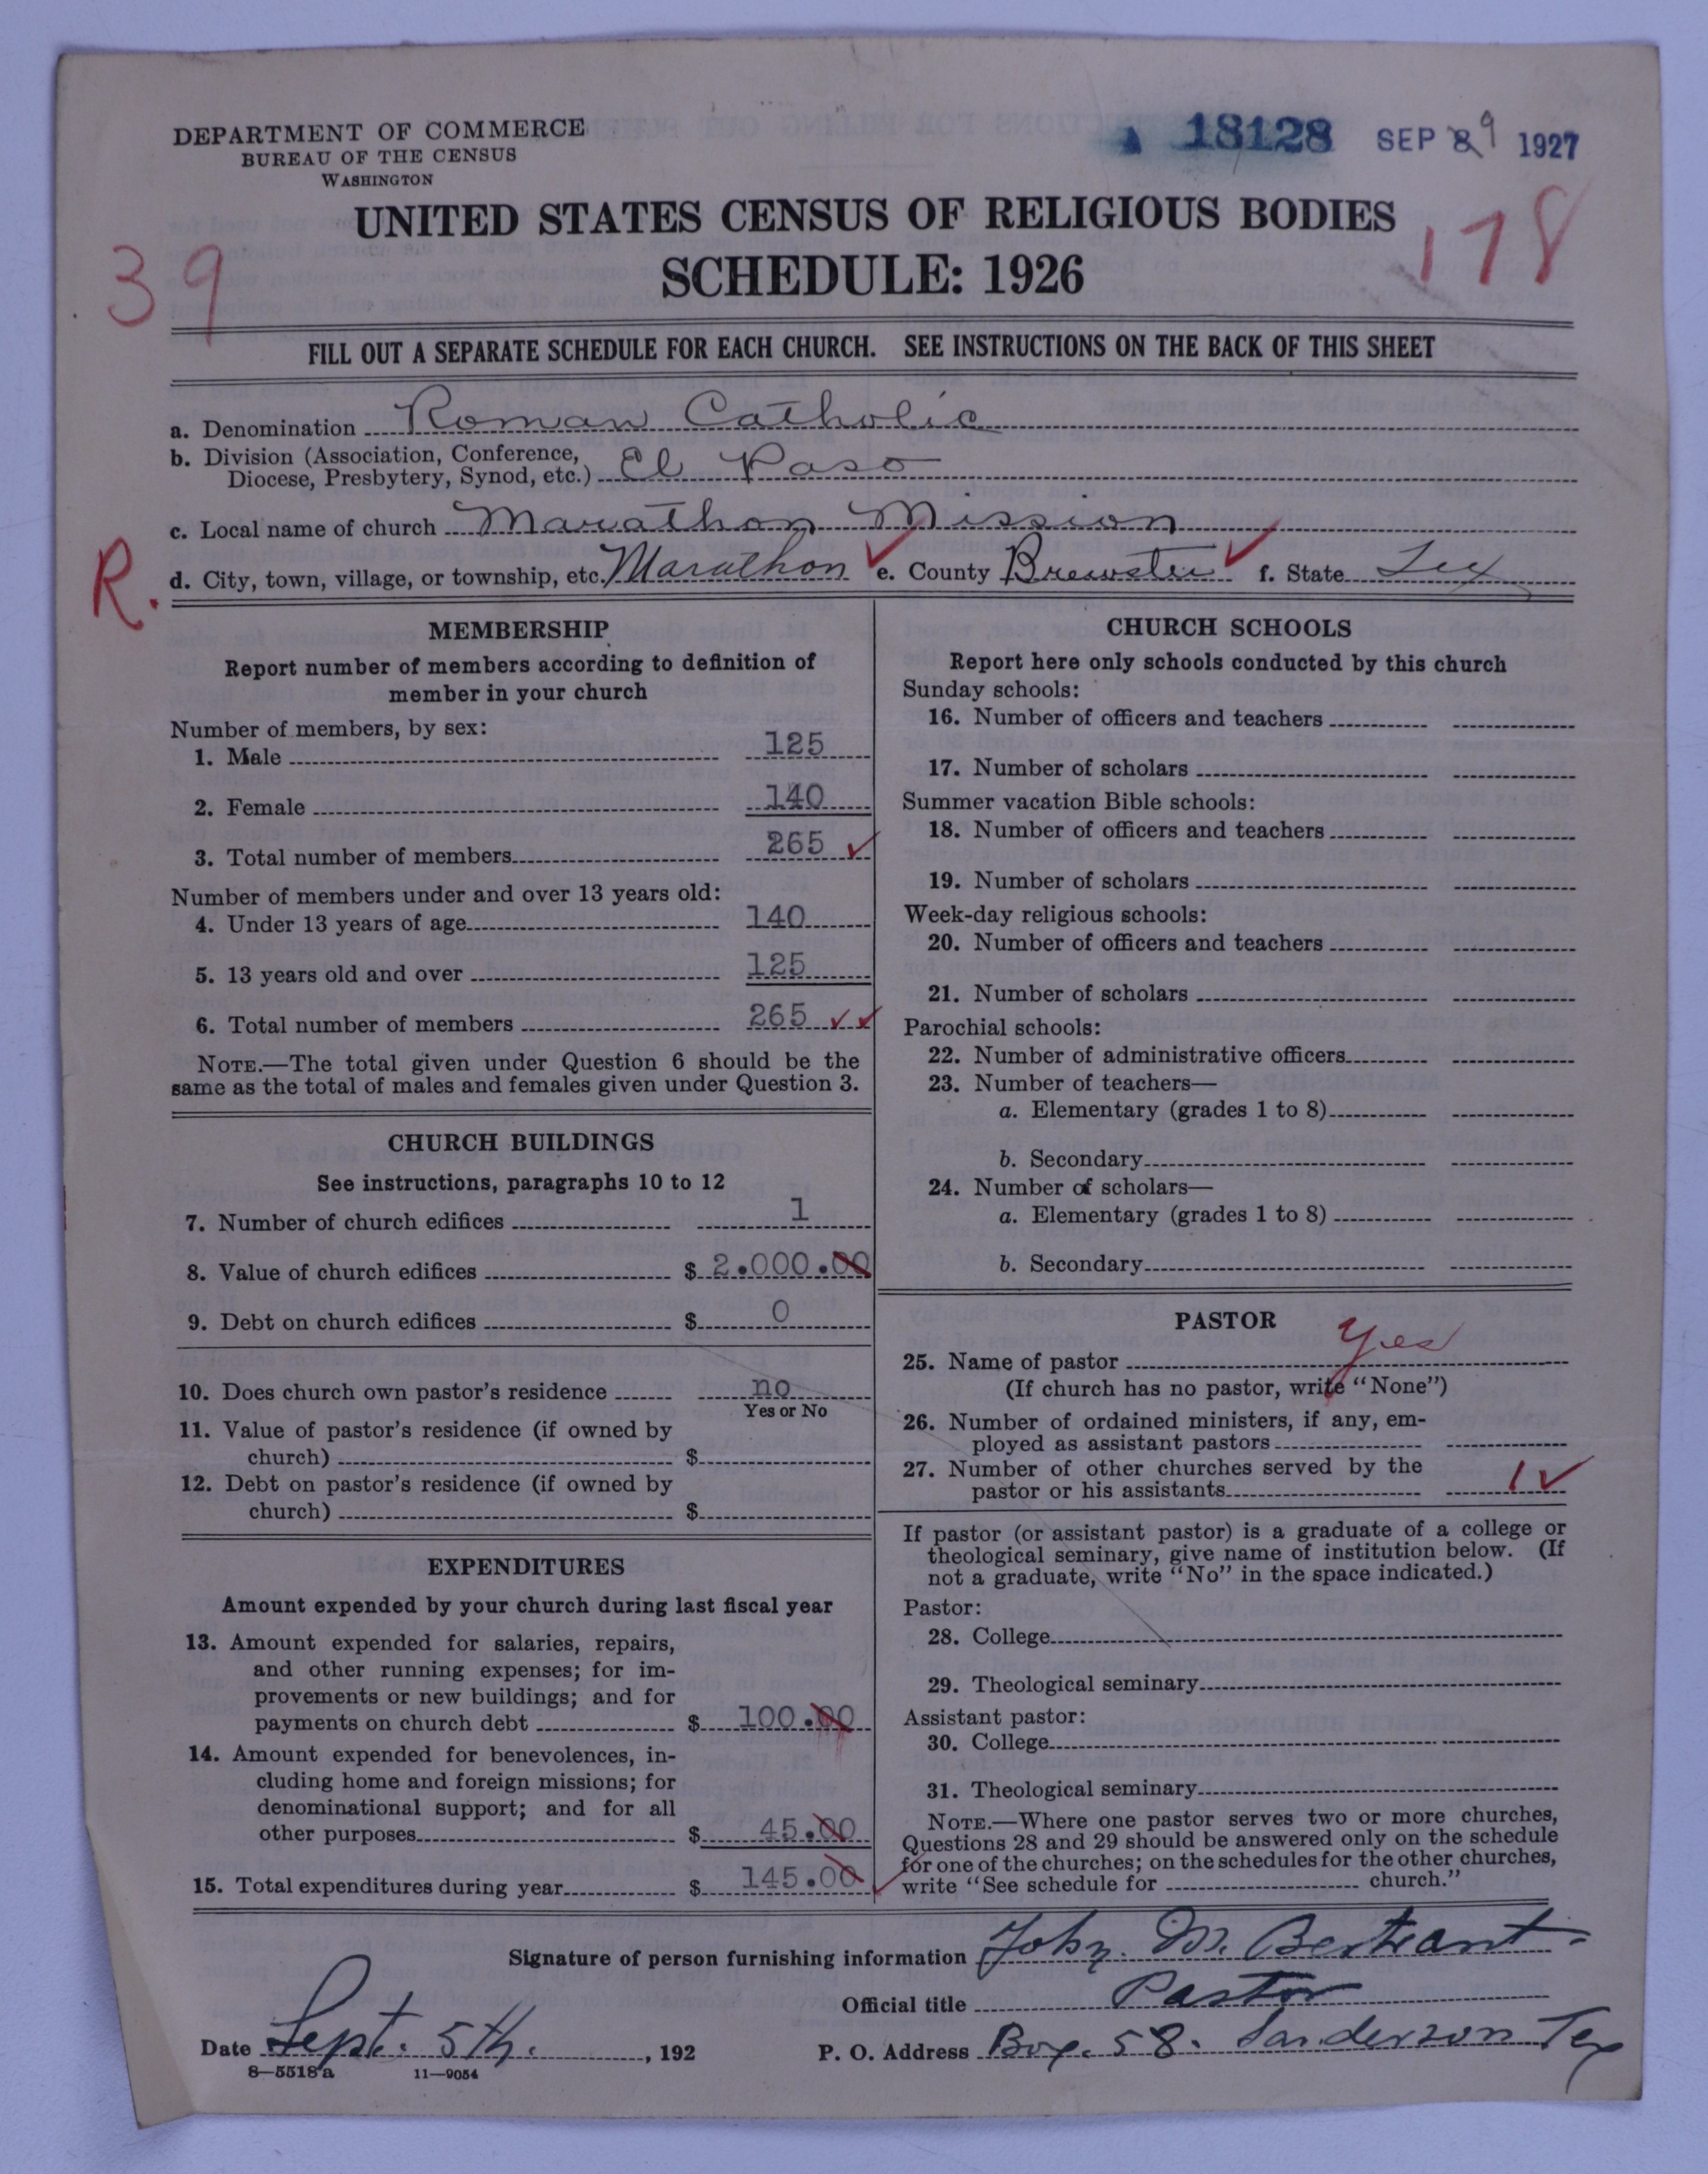 DEPARTMENT OF COMMERCE
BUREAU OF THE CENSUS
WASHINGTON
18128 SEP 9 1927
UNITED STATES CENSUS OF RELIGIOUS BODIES
SCHEDULE: 1926
39
178
FILL OUT A SEPARATE SCHEDULE FOR EACH CHURCH. SEE INSTRUCTIONS ON THE BACK OF THIS SHEET
a. Denomination Roman Catholic
b. Division (Association, Conference,
Diocese, Presbytery, Synod, etc.) El Paso
c. Local name of church Marathon Mission
R. d. City, town, village, or township, etc. Marathon e. County Brewster f. State Tex
MEMBERSHIP
Report number of members according to definition of
member in your church
Number of members, by sex:
1. Male 125
2. Female 140
3. Total number of members 265
Number of members under and over 13 years old:
4. Under 13 years of age 140
5. 13 years old and over 125
6. Total number of members 265
NOTE.—The total given under Question 6 should be the
same as the total of males and females given under Question 3.
CHURCH BUILDINGS
See instructions, paragraphs 10 to 12
7. Number of church edifices 1
8. Value of church edifices $ 2.000.00
9. Debt on church edifices $ 0
10. Does church own pastor's residence no
Yes or No
11. Value of pastor's residence (if owned by
church) $
12. Debt on pastor's residence (if owned by
church) $
EXPENDITURES
Amount expended by your church during last fiscal year
13. Amount expended for salaries, repairs,
and other running expenses; for im-
provements or new buildings; and for
payments on church debt $ 100.00
14. Amount expended for benevolences, in-
cluding home and foreign missions; for
denominational support; and for all
other purposes $ 45.00
15. Total expenditures during year $ 145.00
CHURCH SCHOOLS
Report here only schools conducted by this church
Sunday schools:
16. Number of officers and teachers
17. Number of scholars
Summer vacation Bible schools:
18. Number of officers and teachers
19. Number of scholars
Week-day religious schools:
20. Number of officers and teachers
21. Number of scholars
Parochial schools:
22. Number of administrative officers
23. Number of teachers—
a. Elementary (grades 1 to 8)
b. Secondary
24. Number of scholars—
a. Elementary (grades 1 to 8)
b. Secondary
PASTOR
25. Name of pastor Yes
(If church has no pastor, write "None")
26. Number of ordained ministers, if any, em-
ployed as assistant pastors
27. Number of other churches served by the
pastor or his assistants 1
If pastor (or assistant pastor) is a graduate of a college or
theological seminary, give name of institution below. (If
not a graduate, write "No" in the space indicated.)
Pastor:
28. College
29. Theological seminary
Assistant pastor:
30. College
31. Theological seminary
NOTE.—Where one pastor serves two or more churches,
Questions 28 and 29 should be answered only on the schedule
for one of the churches; on the schedules for the other churches,
write "See schedule for church."
Signature of person furnishing information John. M. Bertrant.
Official title Pastor
Date Sept. 5th. , 192
P. O. Address Box. 58. Sanderson Tex
8—5518a 11—9054